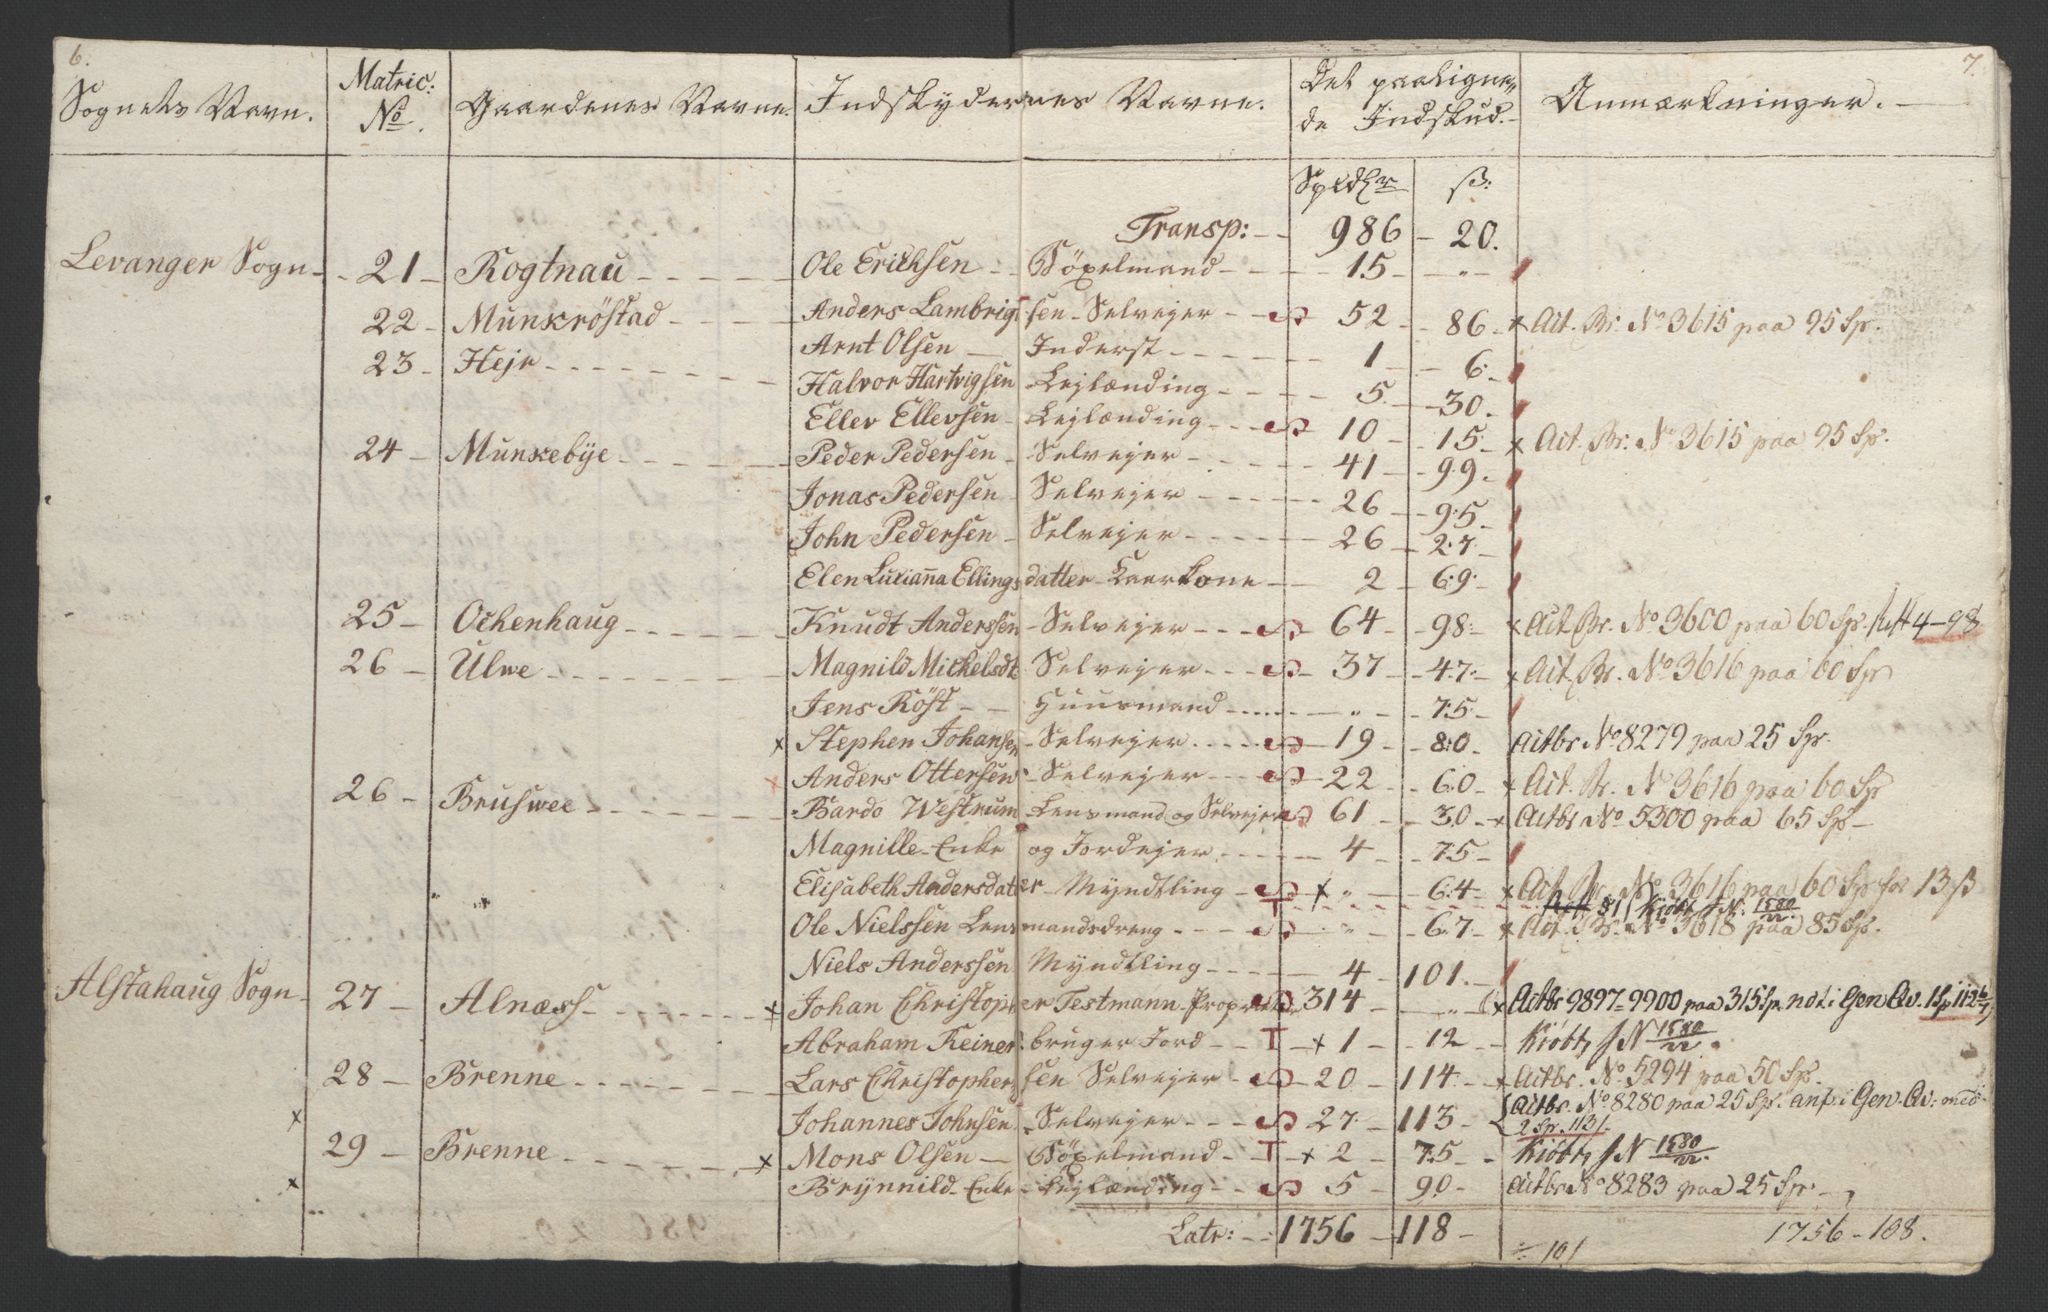 6.
7.
Sognets Navn. Matric: No. Gaardenes Navne. Indskydernes Navne. Det paaligne, Anmærkninger.
de Indskud.
Spdlr ß:
Transp: 986 20.
Levanger Sogn 21 Rogtnau Ole Erichsen Böxelmand 15 "
22 Munkröstad Anders Lambrigtsen Selvejer S 52 86 x Act. Br. No 3615 paa 95 Sp.
23 Hejr Arnt Olsen Inderst 1 6.
Halvor Hartvigsen Lejlænding 5 30.
Eller Ellevsen Lejlænding S 10 15 x Act. Br. No 3615 paa 95 Sp.
24 Munkebÿe Peder Pedersen Selvejer 41 99.
Jonas Pedersen Selvejer 26 95
John Pedersen Selvejer 26 27
Elen Lucianna Ellingsdatter Kaarkone 2 69
25 Ockenhaug Knudt Anderssen Selvejer S 64 98 x Act. Br. No 3600 paa 60 Sp. 4-98
26 Ulwe Magnild Michelsdt Selvejer S 37 47 x Act. Br. No 3616 paa 60 Sp
Jens Röst Huusmand " 75
x Stephen Johansen Selvejer S 19 80 Actbr No 8279 paa 25 Sp.
Anders Ottersen Selvejer S 22 60 x Act. Br. No 3616 paa 60 Sp
26 Bruswee Bardo Westrum Lensmand og Selvejer S 61 30 x Actbr No 5300 paa 65 Sp
Magnille Enke og Jordejer 4 75
Elisabeth Andersdater Myndtling S x " 64 x Act. Br. No 3616 paa 60 Sp for 13 ß
T 51 Kiöbt f N. 1580/22.
Ole Nielssen Lensmandsdreng S " 67 x Act. Br. No 3618 paa 85 Sp.
Niels Anderssen Myndtling 4 101.
Alstahaug Sogn 27 Alnæss x Johan Christopher Testmann Propriet S 314 " x Actbr 9897-9900 paa 315 Sp ndt i Gen Qv. 1 Sp
Abraham Reiner bruger Jord T x 1 12 Kiöbt f N 1580/22.
28 Brenne Lars Christophersen Selvejer S 20 114 x Actbr. No 5294 paa 50 Sp.
x Johannes Johnsen Selvejer S 27 113 Actbr. No 8280 paa 25 Sp. anf. i Gen. Qv: med
2 Sp. 113 ß.
29 Brenne x Mons Olsen Böxelmand T x 2 75 Kiöbt f N 1580/22.
x Brÿnnild Enke Lejlænding S 5 90 Actbr No 8283 paa 25 Sp.
Latr: 1756 118 1756-108.
101